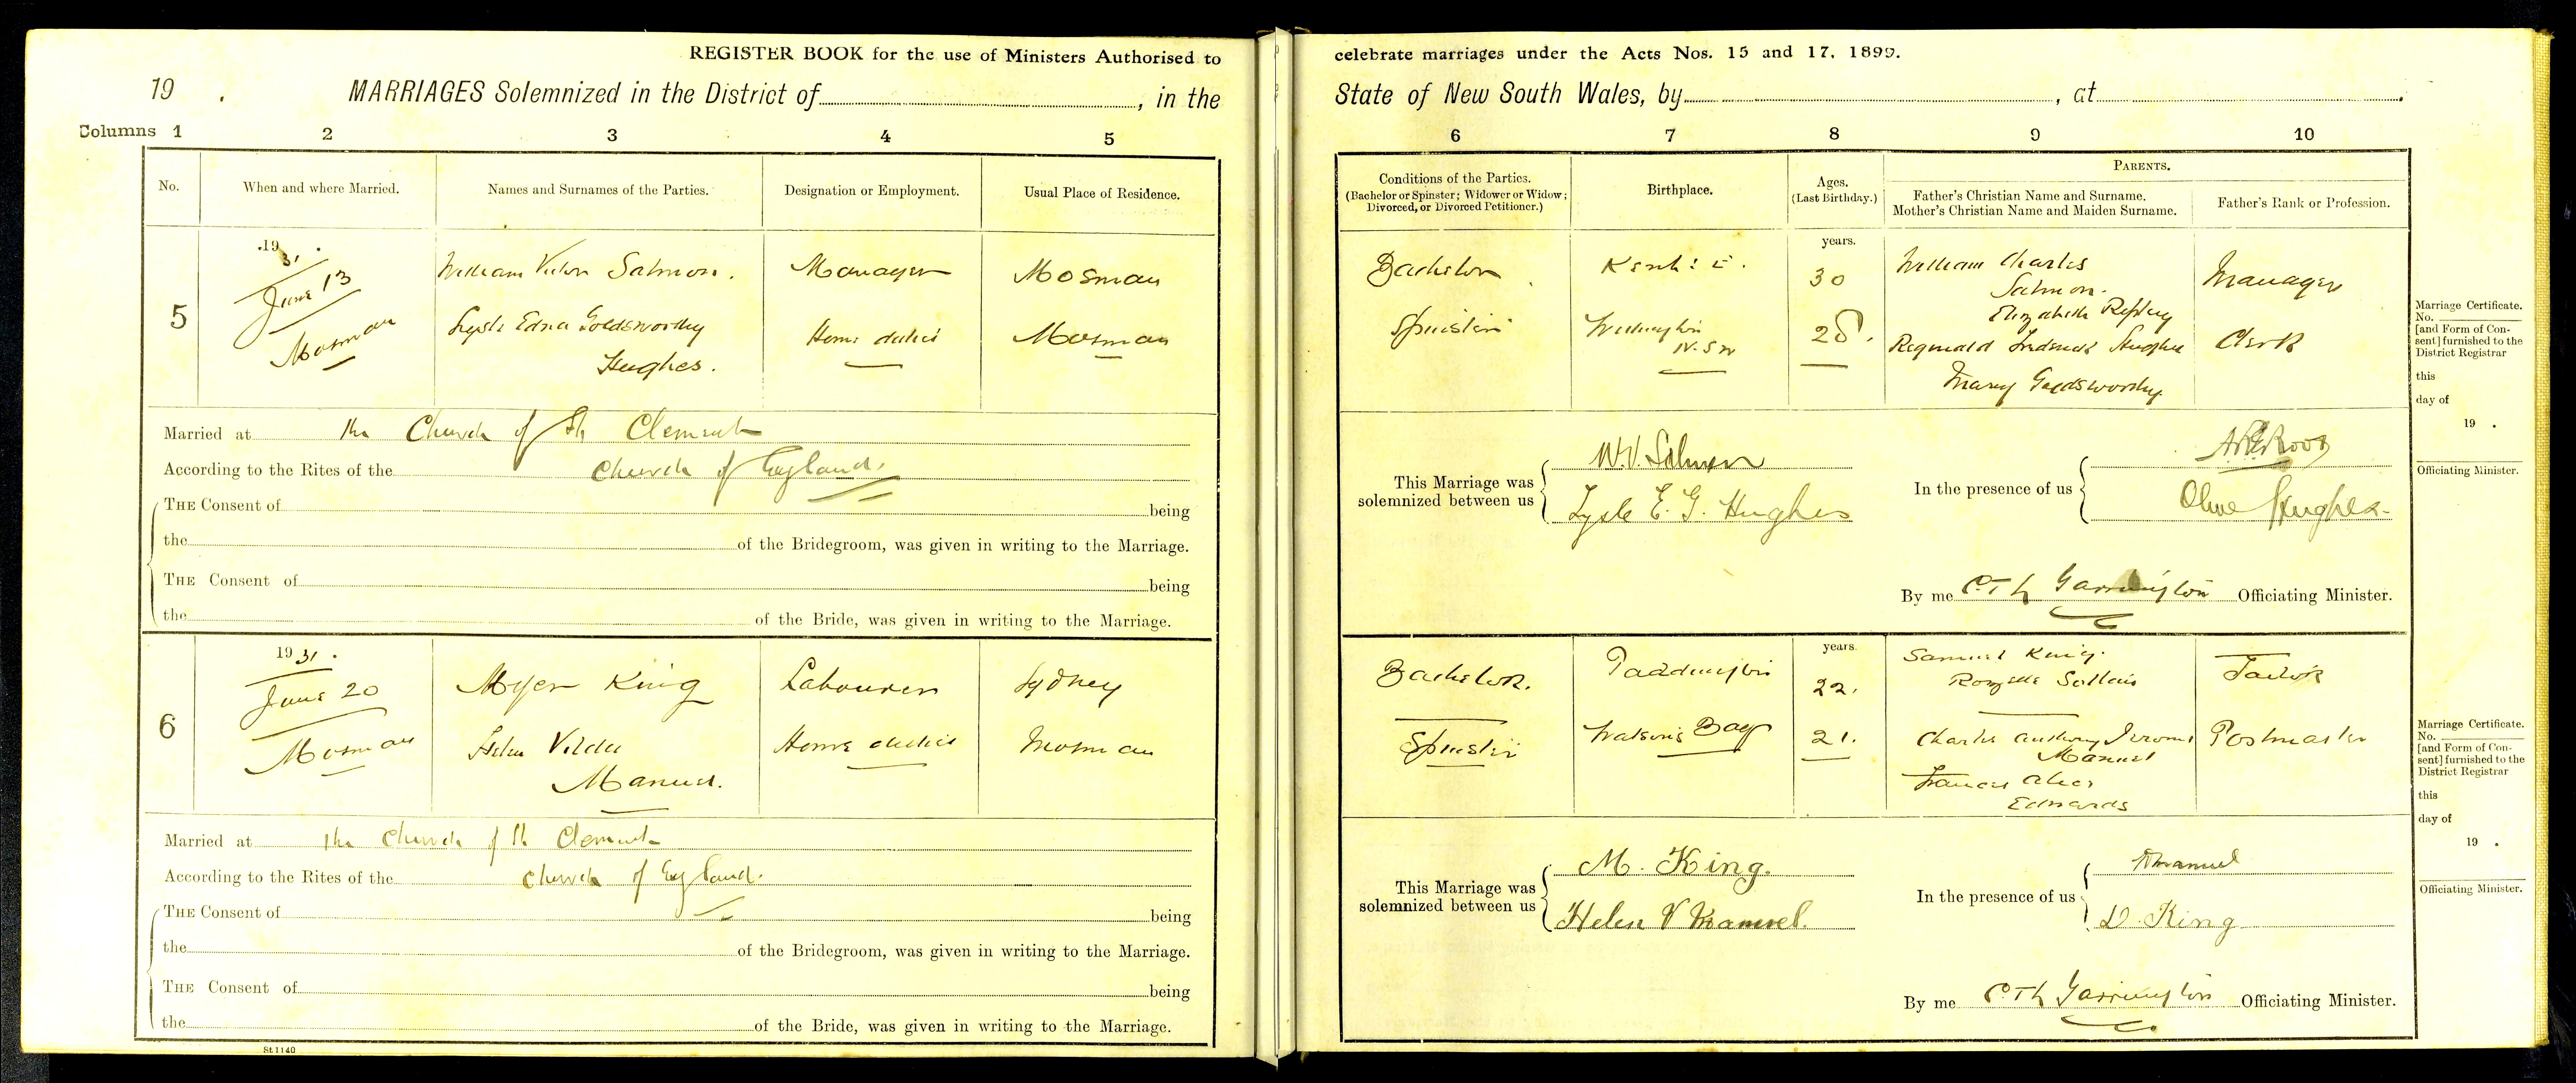 REGISTER BOOK for the use of Ministers Authorised to celebrate marriages under the Acts Nos. 15 and 17, 1899.
19 . MARRIAGES Solemnized in the District of , in the State of New South Wales, by , at .
Columns 1 2 3 4 5 6 7 8 9 10
No.
When and where Married.
Names and Surnames of the Parties.
Designation or Employment.
Usual Place of Residence.
Conditions of the Parties.
(Bachelor or Spinster; Widower or Widow;
Divorced, or Divorced Petitioner.)
Birthplace.
Ages.
(Last Birthday.)
PARENTS.
Father's Christian Name and Surname.
Mother's Christian Name and Maiden Surname.
Father's Rank or Profession.
5
19 31.
June 13
Mosman
William Victor Salmon.
Lysle Edna Goldsworthy
Hughes.
Manager
Home duties
Mosman
Mosman
Bachelor
Spinster
Kent: E.
N.S.W
years.
30
28.
William Charles
Salmon.
Elizabeth
Reginald Frederick Hughes
Mary Goldsworthy
Manager
Clerk
Married at the Church of St Clement
According to the Rites of the Church of England.
THE Consent of being
the of the Bridegroom, was given in writing to the Marriage.
THE Consent of being
the of the Bride, was given in writing to the Marriage.
This Marriage was
solemnized between us
W.V. Salmon
Lysle E. G. Hughes
In the presence of us
Olive Hughes.
By me C T L Garrington Officiating Minister.
Marriage Certificate.
No.
[and Form of Con-
sent] furnished to the
District Registrar
this
day of
19 .
Officiating Minister.
6
1931.
June 20
Mosman
Myer King
Helen Vilda
Manuel.
Labourer
Home duties
Sydney
Mosman
Bachelor.
Spinster
Paddington
Watsons Bay
years.
22.
21.
Samuel King.
Charles Anthony Jerome
Manuel
Frances Alice
Edwards
Tailor
Postmaster
Married at the Church of St Clement
According to the Rites of the Church of England.
THE Consent of being
the of the Bridegroom, was given in writing to the Marriage.
THE Consent of being
the of the Bride, was given in writing to the Marriage.
This Marriage was
solemnized between us
M. King.
Helen V Manuel.
In the presence of us
Manuel
D. King
By me C T L Garrington Officiating Minister.
Marriage Certificate.
No.
[and Form of Con-
sent] furnished to the
District Registrar
this
day of
19 .
Officiating Minister.
St.1140